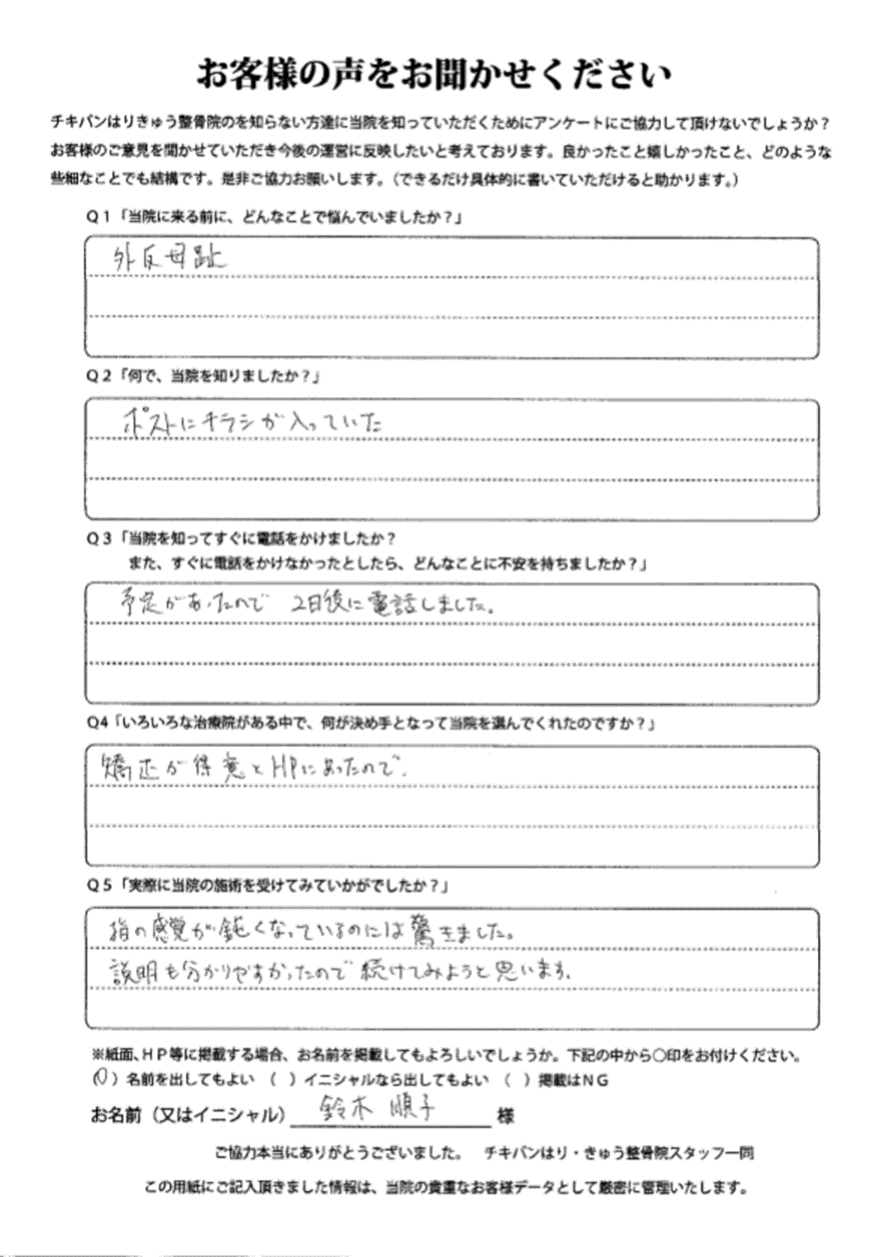 お客様の声をお聞かせください
チキバンはりきゅう整骨院のを知らない方達に当院を知っていただくためにアンケートにご協力して頂けないでしょうか？
お客様のご意見を聞かせていただき今後の運営に反映したいと考えております。良かったこと嬉しかったこと、どのような
些細なことでも結構です。是非ご協力お願いします。（できるだけ具体的に書いていただけると助かります。）
Q１「当院に来る前に、どんなことで悩んでいましたか？」
外反母趾
Q２「何で、当院を知りましたか？」
ポストにチラシが入っていた
Q３「当院を知ってすぐに電話をかけましたか？
また、すぐに電話をかけなかったとしたら、どんなことに不安を持ちましたか？」
予定があったので 2日後に電話しました。
Q4「いろいろな治療院がある中で、何が決め手となって当院を選んでくれたのですか？」
矯正が得意とHPにあったので.
Q５「実際に当院の施術を受けてみていかがでしたか？」
指の感覚が鈍くなっているのには驚きました。
説明も分かりやすかったので続けてみようと思います。
※紙面、ＨＰ等に掲載する場合、お名前を掲載してもよろしいでしょうか。下記の中から○印をお付けください。
（○）名前を出してもよい （ ）イニシャルなら出してもよい （ ）掲載はＮＧ
お名前（又はイニシャル） 鈴木 順子 様
ご協力本当にありがとうございました。 チキバンはり・きゅう整骨院スタッフ一同
この用紙にご記入頂きました情報は、当院の貴重なお客様データとして厳密に管理いたします。